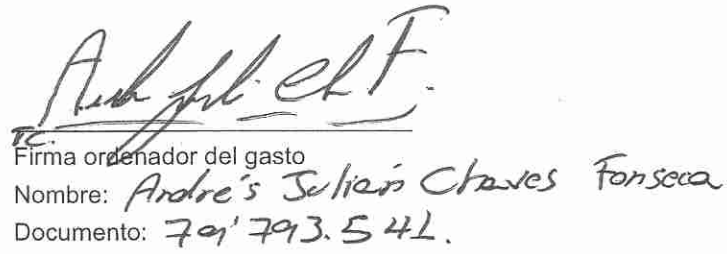 TC.
Firma ordenador del gasto
Nombre: Andrés Julián Chaves Fonseca
Documento: 79'793.541.